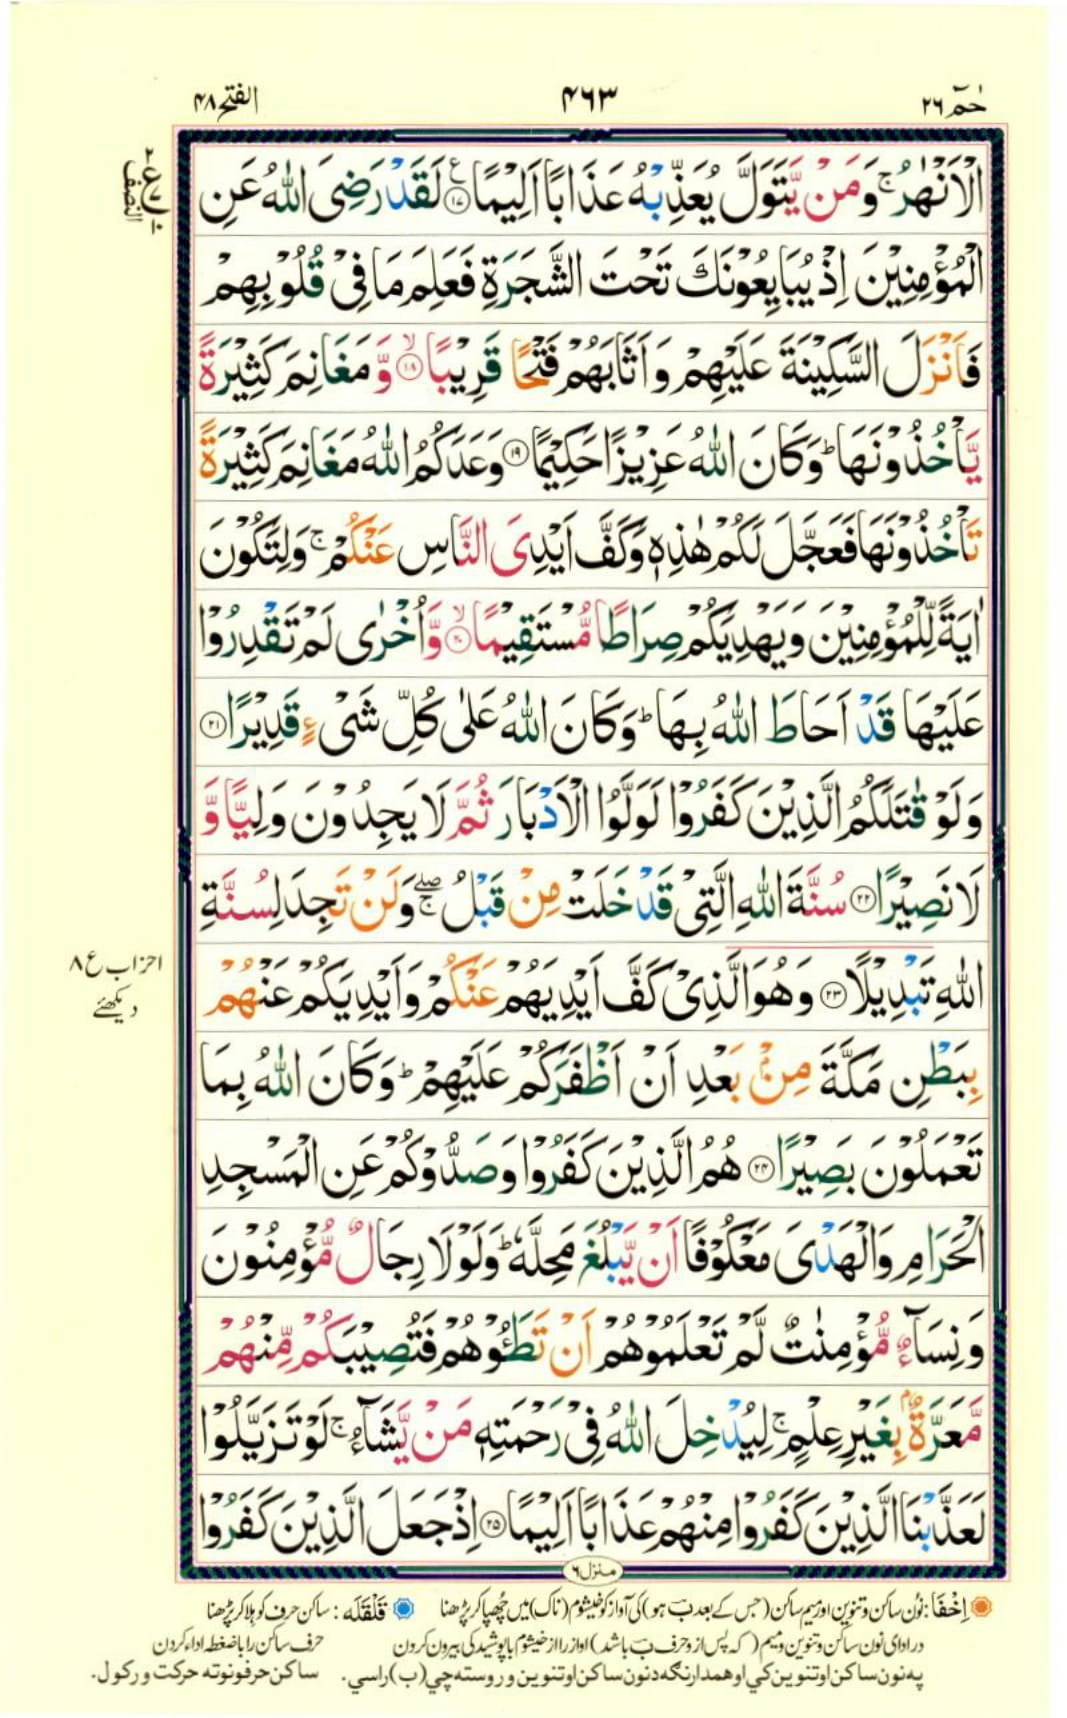 حٰمٓ ٢٦
۴۶۳
الفتح ۴۸
الْاَنْهٰرُ ۚ وَمَنْ يَّتَوَلَّ يُعَذِّبْهُ عَذَابًا اَلِيْمًا ࣖ ﴿۱۷﴾ لَقَدْ رَضِیَ اللّٰهُ عَنِ
الْمُؤْمِنِيْنَ اِذْ يُبَايِعُوْنَكَ تَحْتَ الشَّجَرَةِ فَعَلِمَ مَا فِیْ قُلُوْبِهِمْ
فَاَنْزَلَ السَّكِيْنَةَ عَلَيْهِمْ وَاَثَابَهُمْ فَتْحًا قَرِيْبًا ۙ ﴿۱۸﴾ وَّمَغَانِمَ كَثِيْرَةً
يَّاْخُذُوْنَهَا ؕ وَكَانَ اللّٰهُ عَزِيْزًا حَكِيْمًا ﴿۱۹﴾ وَعَدَكُمُ اللّٰهُ مَغَانِمَ كَثِيْرَةً
تَاْخُذُوْنَهَا فَعَجَّلَ لَكُمْ هٰذِهٖ وَكَفَّ اَيْدِیَ النَّاسِ عَنْكُمْ ۚ وَلِتَكُوْنَ
اٰيَةً لِّلْمُؤْمِنِيْنَ وَيَهْدِيَكُمْ صِرَاطًا مُّسْتَقِيْمًا ۙ ﴿۲۰﴾ وَّاُخْرٰی لَمْ تَقْدِرُوْا
عَلَيْهَا قَدْ اَحَاطَ اللّٰهُ بِهَا ؕ وَكَانَ اللّٰهُ عَلٰی كُلِّ شَیْءٍ قَدِيْرًا ﴿۲۱﴾
وَلَوْ قٰتَلَكُمُ الَّذِيْنَ كَفَرُوْا لَوَلَّوُا الْاَدْبَارَ ثُمَّ لَا يَجِدُوْنَ وَلِيًّا وَّ
لَا نَصِيْرًا ﴿۲۲﴾ سُنَّةَ اللّٰهِ الَّتِیْ قَدْ خَلَتْ مِنْ قَبْلُ ۖۚ وَلَنْ تَجِدَ لِسُنَّةِ
اللّٰهِ تَبْدِيْلًا ﴿۲۳﴾ وَهُوَ الَّذِیْ كَفَّ اَيْدِيَهُمْ عَنْكُمْ وَاَيْدِيَكُمْ عَنْهُمْ
بِبَطْنِ مَكَّةَ مِنْۢ بَعْدِ اَنْ اَظْفَرَكُمْ عَلَيْهِمْ ؕ وَكَانَ اللّٰهُ بِمَا
تَعْمَلُوْنَ بَصِيْرًا ﴿۲۴﴾ هُمُ الَّذِيْنَ كَفَرُوْا وَصَدُّوْكُمْ عَنِ الْمَسْجِدِ
الْحَرَامِ وَالْهَدْیَ مَعْكُوْفًا اَنْ يَّبْلُغَ مَحِلَّهٗ ؕ وَلَوْلَا رِجَالٌ مُّؤْمِنُوْنَ
وَنِسَآءٌ مُّؤْمِنٰتٌ لَّمْ تَعْلَمُوْهُمْ اَنْ تَطَـُٔوْهُمْ فَتُصِيْبَكُمْ مِّنْهُمْ
مَّعَرَّةٌۢ بِغَيْرِ عِلْمٍ ۚ لِيُدْخِلَ اللّٰهُ فِیْ رَحْمَتِهٖ مَنْ يَّشَآءُ ۚ لَوْ تَزَيَّلُوْا
لَعَذَّبْنَا الَّذِيْنَ كَفَرُوْا مِنْهُمْ عَذَابًا اَلِيْمًا ﴿۲۵﴾ اِذْ جَعَلَ الَّذِيْنَ كَفَرُوْا
النصف
احزاب ع ۸
دیکھئے
منزل ۶
اِخْفَا : نُون ساکن و تنوین اور میم ساکن (جس کے بعد بَ ہو) کی آواز کو خیشوم (ناک) میں چُھپا کر پڑھنا قَلْقَلَه : ساکن حرف کو ہلا کر پڑھنا
در ادای نون ساکن و تنوین و میم (که پس از و حرف بَ باشد) اواز را از خیشوم با پوشیدگی بیرون کردن حرف ساکن را با ضغطه اداء کردن
په نون ساکن او تنوین کي او همدارنګه د نون ساکن او تنوین وروسته چي (ب) راسي. ساکن حرفونو ته حرکت ورکول.